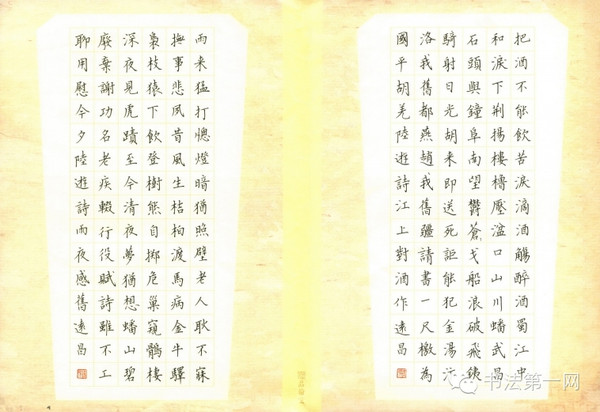 把酒不能飲苦淚滴酒觴醉酒蜀江中
和淚下荊揚樓櫓壓湓口山川蟠武昌
石頭與鐘阜南望鬱蒼〻戈船浪破飛鐵
騎射日光胡来即送死詎能犯金湯汴
洛我舊都燕趙我舊疆請書一尺檄為
國平胡羌陸遊詩江上對酒作遠昌
雨来猛打憁燈暗猶照壁老人耿不寐
撫事悲夙昔風生枯柏渡馬病金牛驛
梟枝猿下飲登樹熊自擲危巢窺鶻棲
深夜見虎蹟至今清夜夢猶想蟠山碧
廢棄謝功名老疾輟行役賦詩雖不工
聊用慰今夕陸遊詩雨夜感舊遠昌
书法第一网